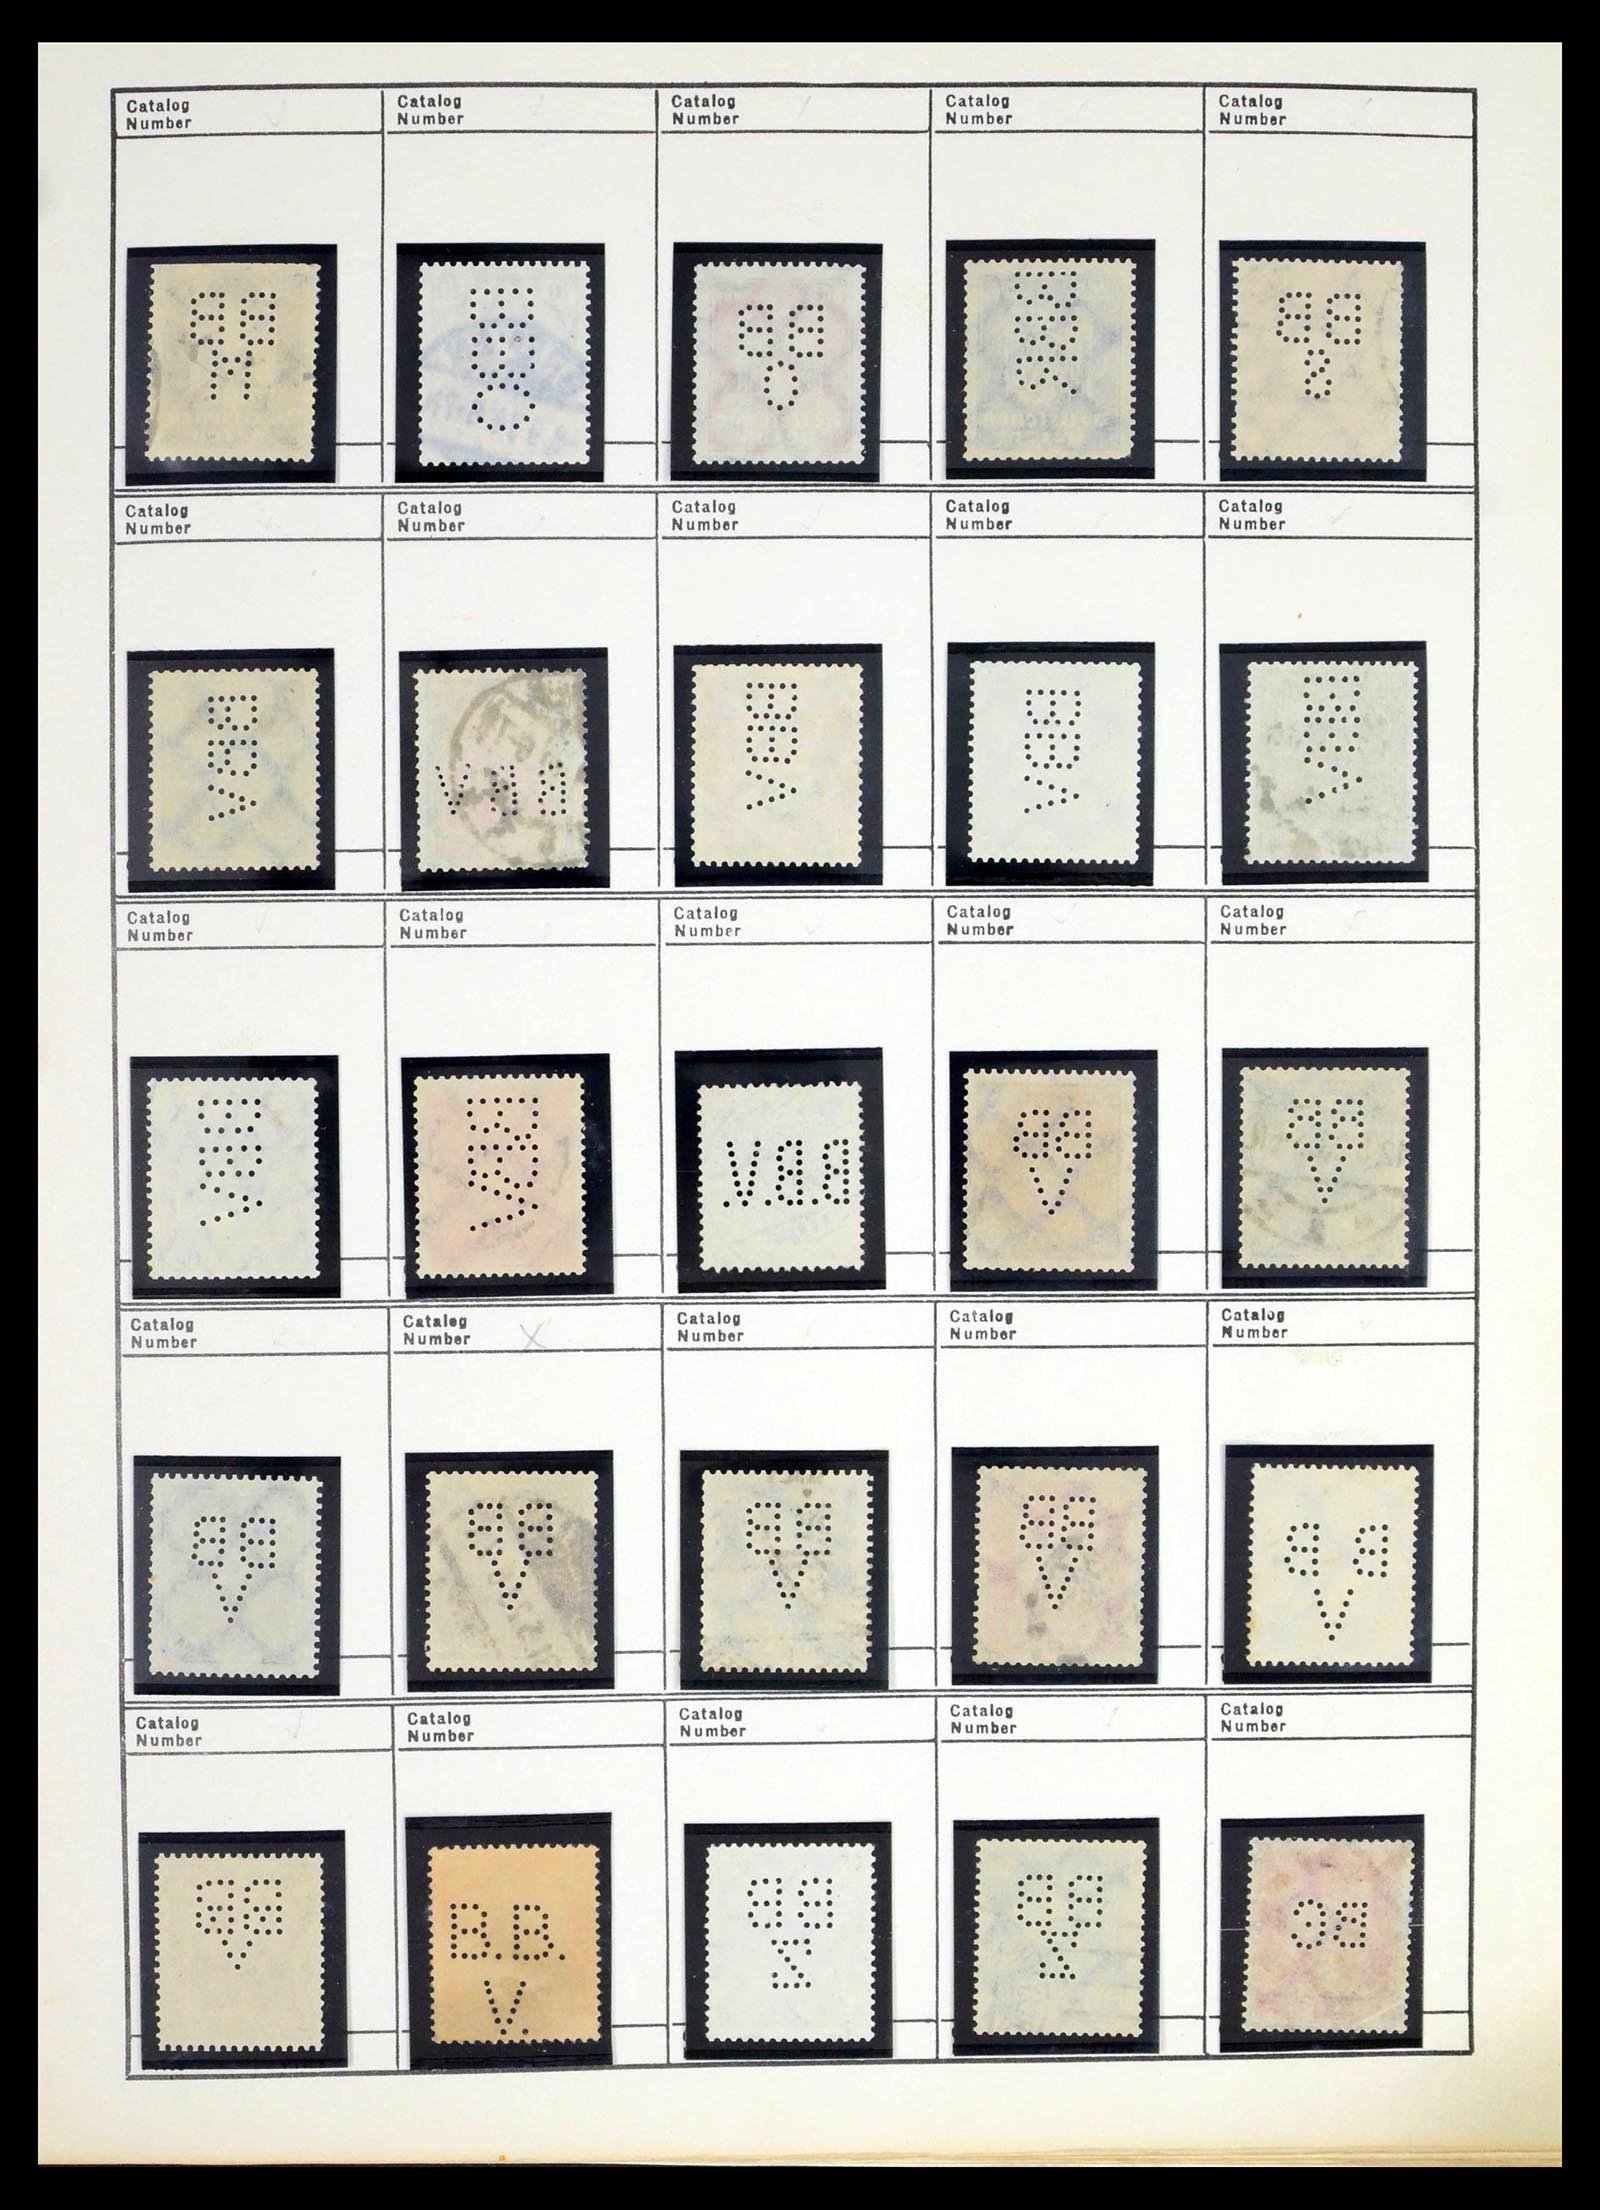 Catalog
Number
Catalog
Number
Catalog
Number
Catalog
Number
Catalog
Number
BB
M
BBC
BB
O
BB
S
Catalog
Number
Catalog
Number
Catalog
Number
Catalog
Number
Catalog
Number
BBV
BBV
BBV
BBV
BBV
Catalog
Number
Catalog
Number
Catalog
Number
Catalog
Number
Catalog
Number
BBV
BBV
B.B.V.
BB
V
BB
V
Catalog
Number
Catalog
Number
X
Catalog
Number
Catalog
Number
Catalog
Number
BB
V
BB
V
BB
V
BB
V
BB
V
Catalog
Number
Catalog
Number
Catalog
Number
Catalog
Number
Catalog
Number
BB
V
B.B.
V.
BB
Z
BB
Z
BC